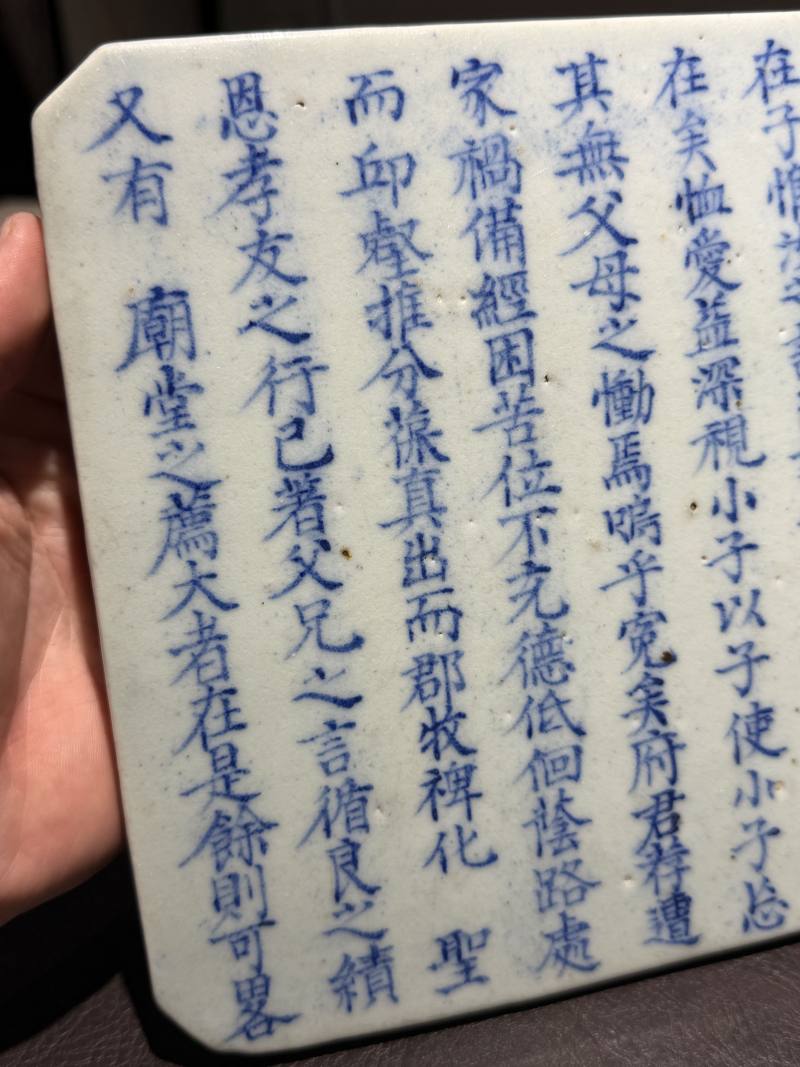 在子
在矣恤愛益深視小子以子使小子忘
其無父母之慟焉嗚乎冤矣府君荐遭
家禍備經困苦位不充德低佪蔭路處
而邱壑推分葆真出而郡牧裨化 聖
恩孝友之行已著父兄之言循良之績
又有 廟堂之薦大者在是餘則可畧